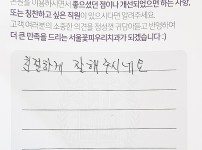 진료를 이용하시면서 좋으셨던 점이나 개선되었으면 하는 사항,
또는 칭찬하고 싶은 직원이 있으시다면 알려주세요.
고객 여러분의 소중한 의견을 정성껏 귀담아듣고 반영하여
더 큰 만족을 드리는 서울꽃피우리치과가 되겠습니다 :)
친절하게 잘해주시네요